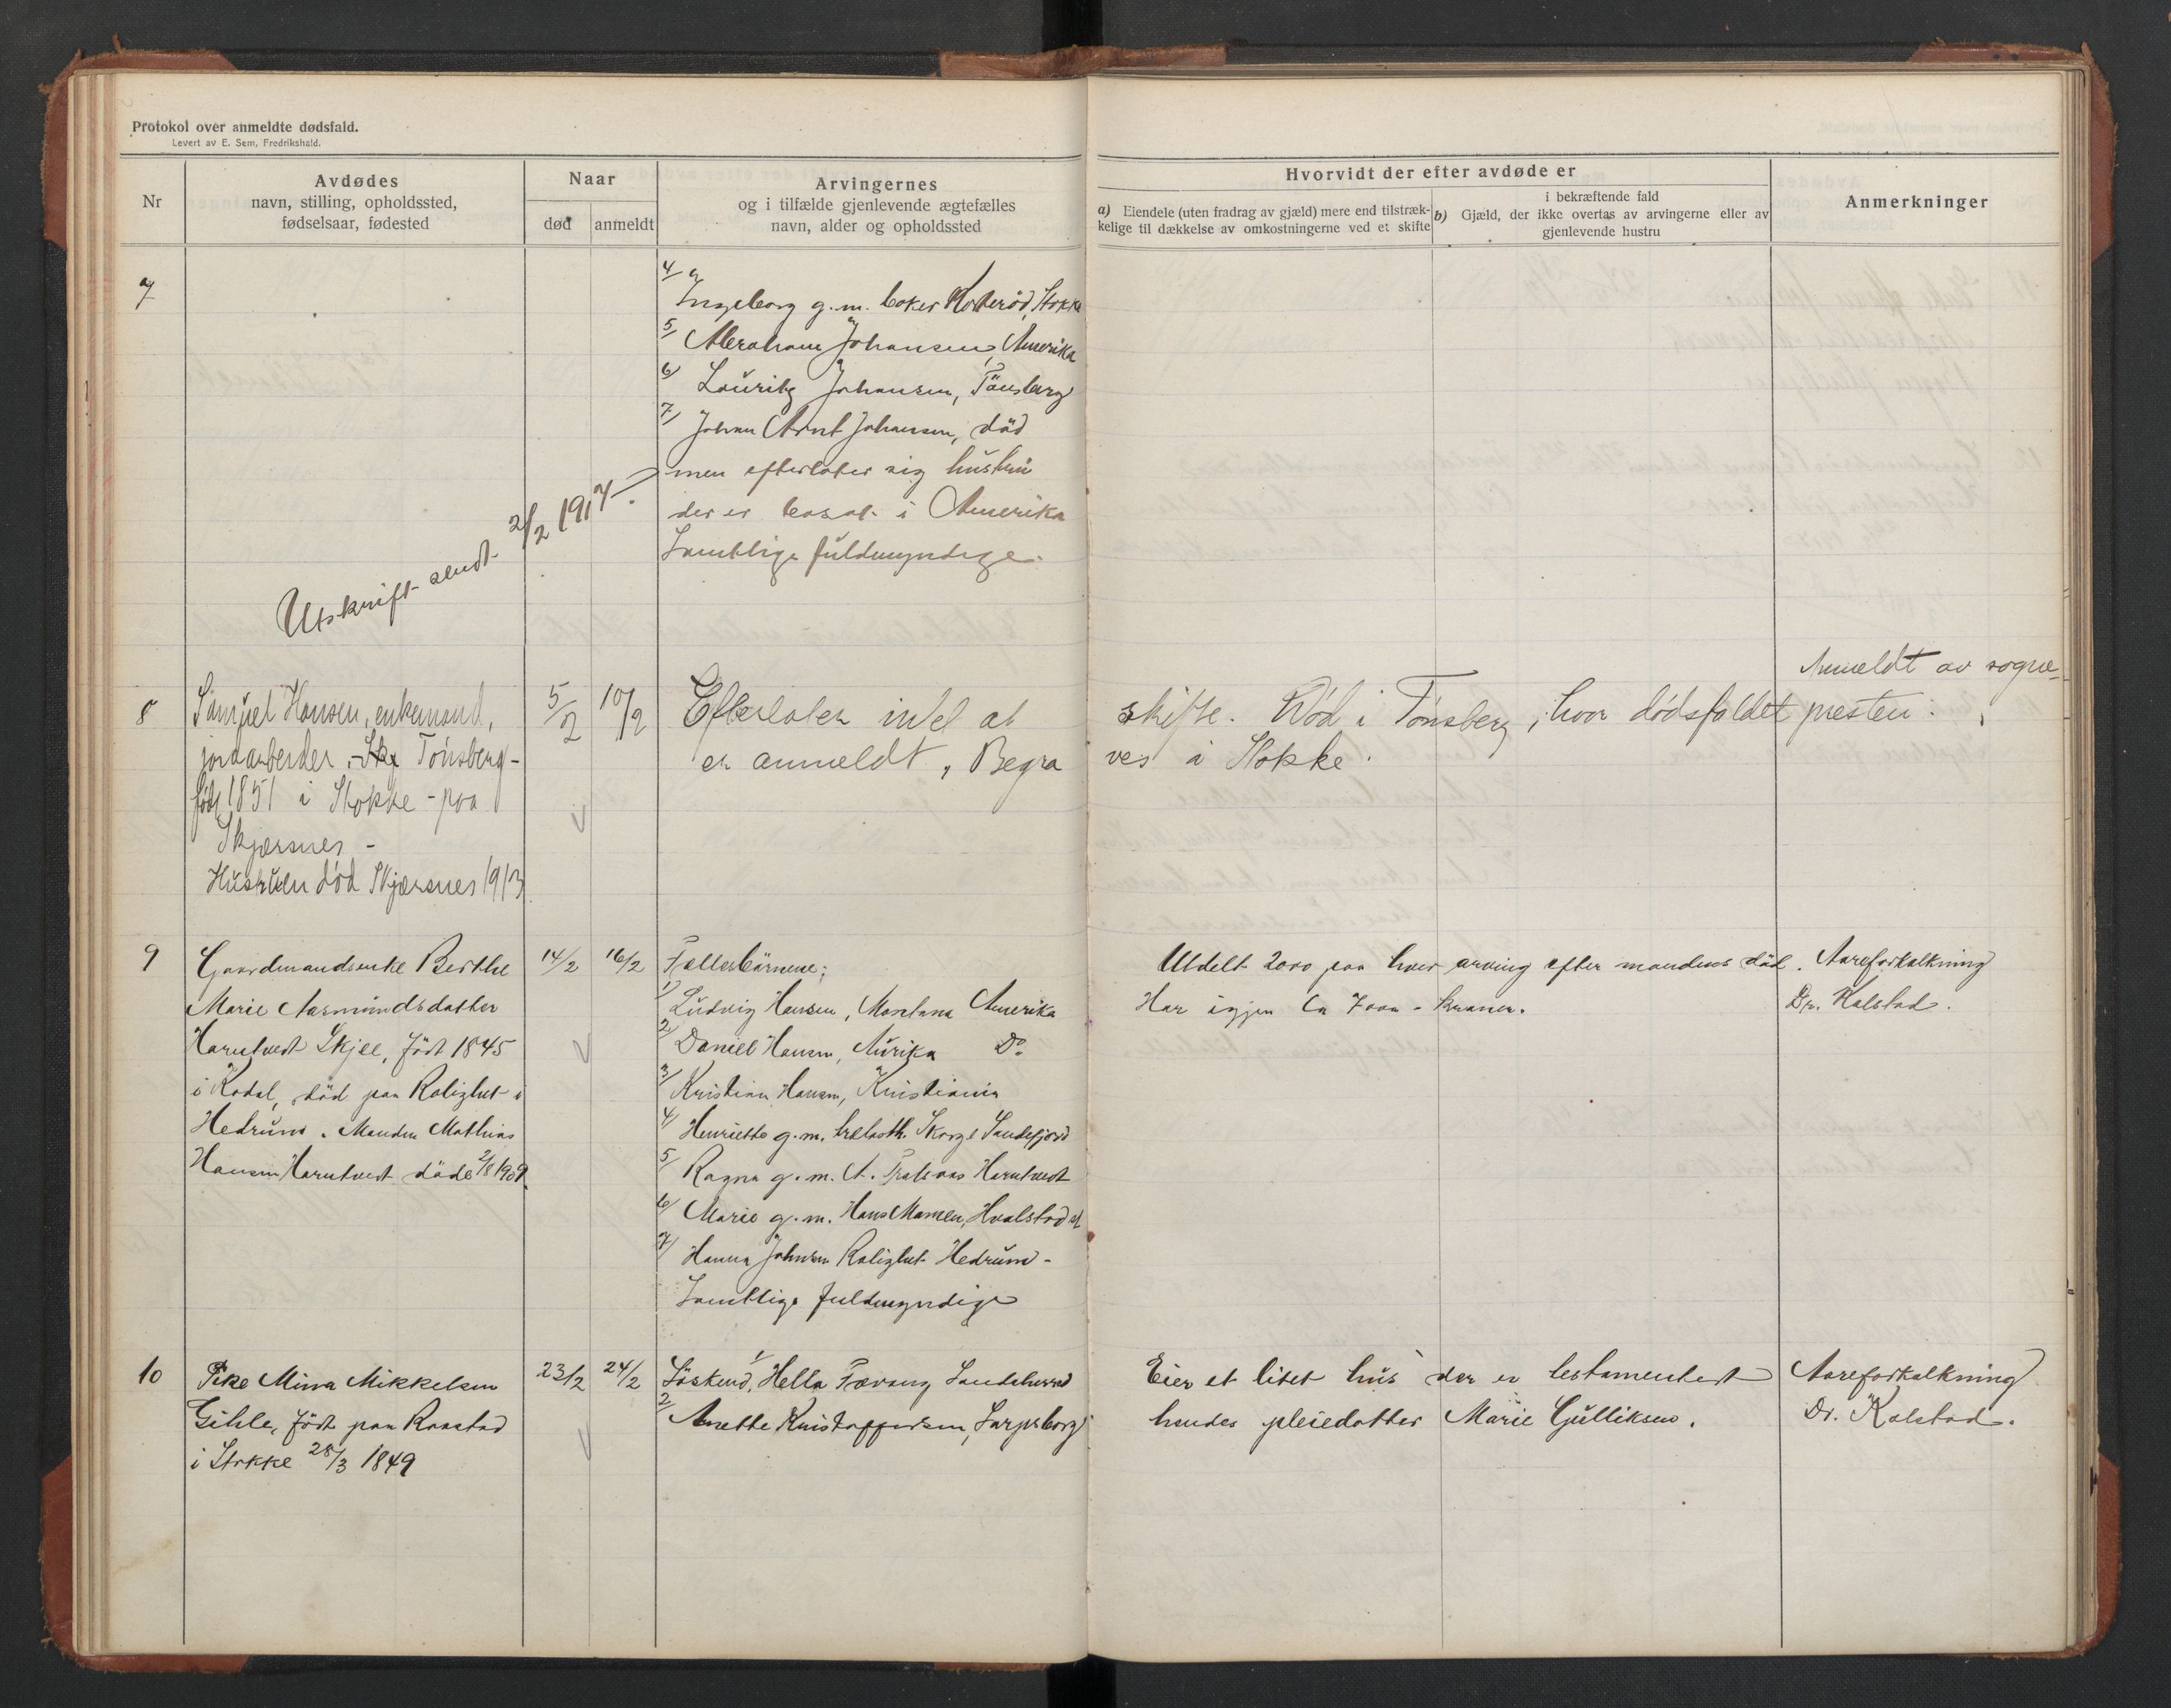 Protokol over anmeldte dødsfald.
Levert av E. Sem, Fredrikshald.
Nr
Avdødes
navn, stilling, opholdssted,
fødselsaar, fødested
Naar
død
anmeldt
Arvingernes
og i tilfælde gjenlevende ægtefælles
navn, alder og opholdssted
Hvorvidt der efter avdøde er
a) Eiendele (uten fradrag av gjæld) mere end tilstræk-
kelige til dækkelse av omkostningerne ved et skifte
i bekræftende fald
b) Gjæld, der ikke overtas av arvingerne eller av
gjenlevende hustru
Anmerkninger
7
4/ Ingeborg g.m. Stokke
5/ Abraham Johansen, Amerika
6/ Lauritz Johansen, Tönsberg
7/ Johan Arnt Johansen, död
men efterlater sig hustru
der er bosat i Amerika
Samtlige fuldmyndige.
Utskrift sendt 2/2 1917
8
Samuel Hansen, enkemand,
jordarbeider, Tönsberg -
født 1851 i Stokke - paa
Skjærsnes -
Hustruen død Skjærsnes 1913
5/2
10/2
Efterlater intet at skifte. Død i Tönsberg, hvor dødsfaldet
er anmeldt, Begraves i Stokke.
Anmeldt av sogne-
presten.
9
Gaardmandsenke Berthe
Marie Aasmundsdatter
Harutvedt Skjee, född 1845
i Kodal, död paa Rolighet i
Hedrum. Manden Mathias
Hansen Harutvedt döde 2/8 1909.
14/2
16/2
Fællesbörnene:
1/ Ludvig Hansen, Montana Amerika
2/ Daniel Hansen, Do
3/ Kristian Hansen, Kristiania
4/ Henriette g.m. Skorge Sandefjord
5/ Ragna g.m. A. Harutvedt
6/ Marie g.m. Hans Hvalstad st
7/ Hanna Johnsen Rolighet Hedrum -
Samtlige fuldmyndige
Utdelt 2000 paa hver arving efter mandens död.
Har igjen Ca 7000 - kroner.
Aareforkalkning
Dr. Kalstad.
10
Pike Mina Mikkelsen
Gihle, född paa Raastad
i Stokke 28/3 1849
23/2
24/2
Söskend, 1/ Hella Sandeherred
2/ Anette Kristoffersen, Sarpsborg
Eier et litet hus der er testamentert
hendes pleiedatter Marie Gulliksen.
Aareforkalkning
Dr. Kalstad.